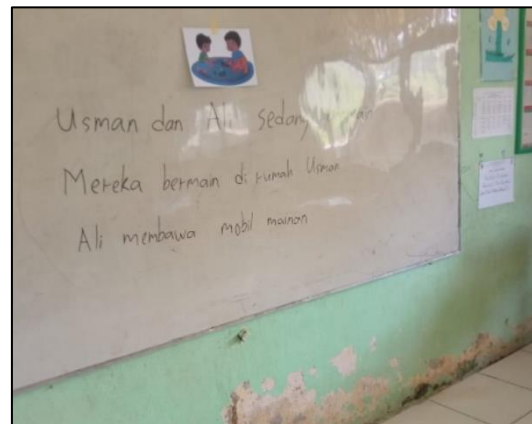 Usman dan Ali sedang
Mereka bermain di rumah Usman
Ali membawa mobil mainan